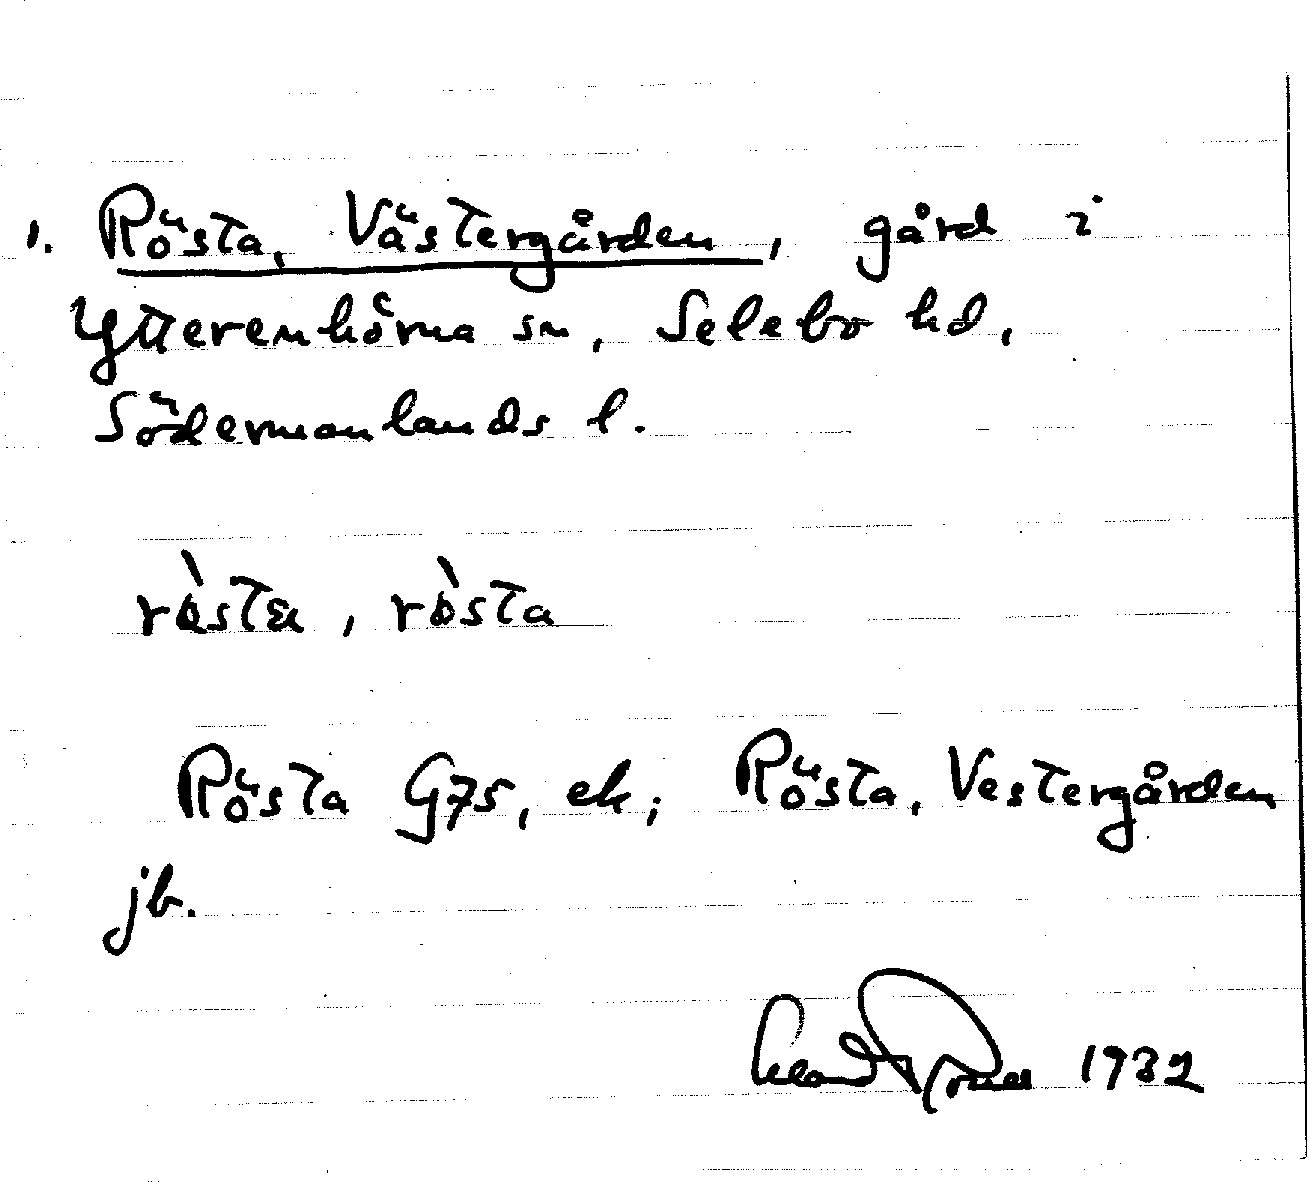 1. Rösta, Västergården, gård i
Ytterenhörna sn, Selebo hd,
Södermanlands l.
rö̀sta, rö̀sta
Rösta G75, ek; Rösta, Vestergården
jb.
1932